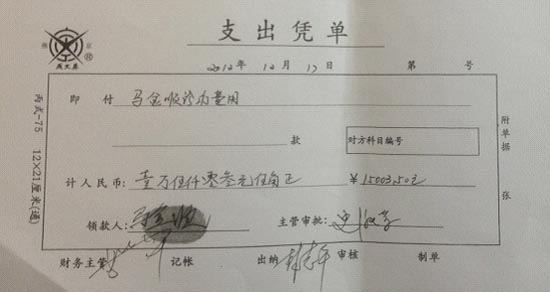 支出凭单
2012年 12月 17日 第 号
即付 马金顺诊为费用
款 对方科目编号
附单据 张
计人民币: 壹万伍仟零叁元伍角正 ¥15003.50元
领款人: 马金顺 主管审批:
财务主管 记帐 出纳 审核 制单
丙式-75 12×21厘米(通)
成文厚
R